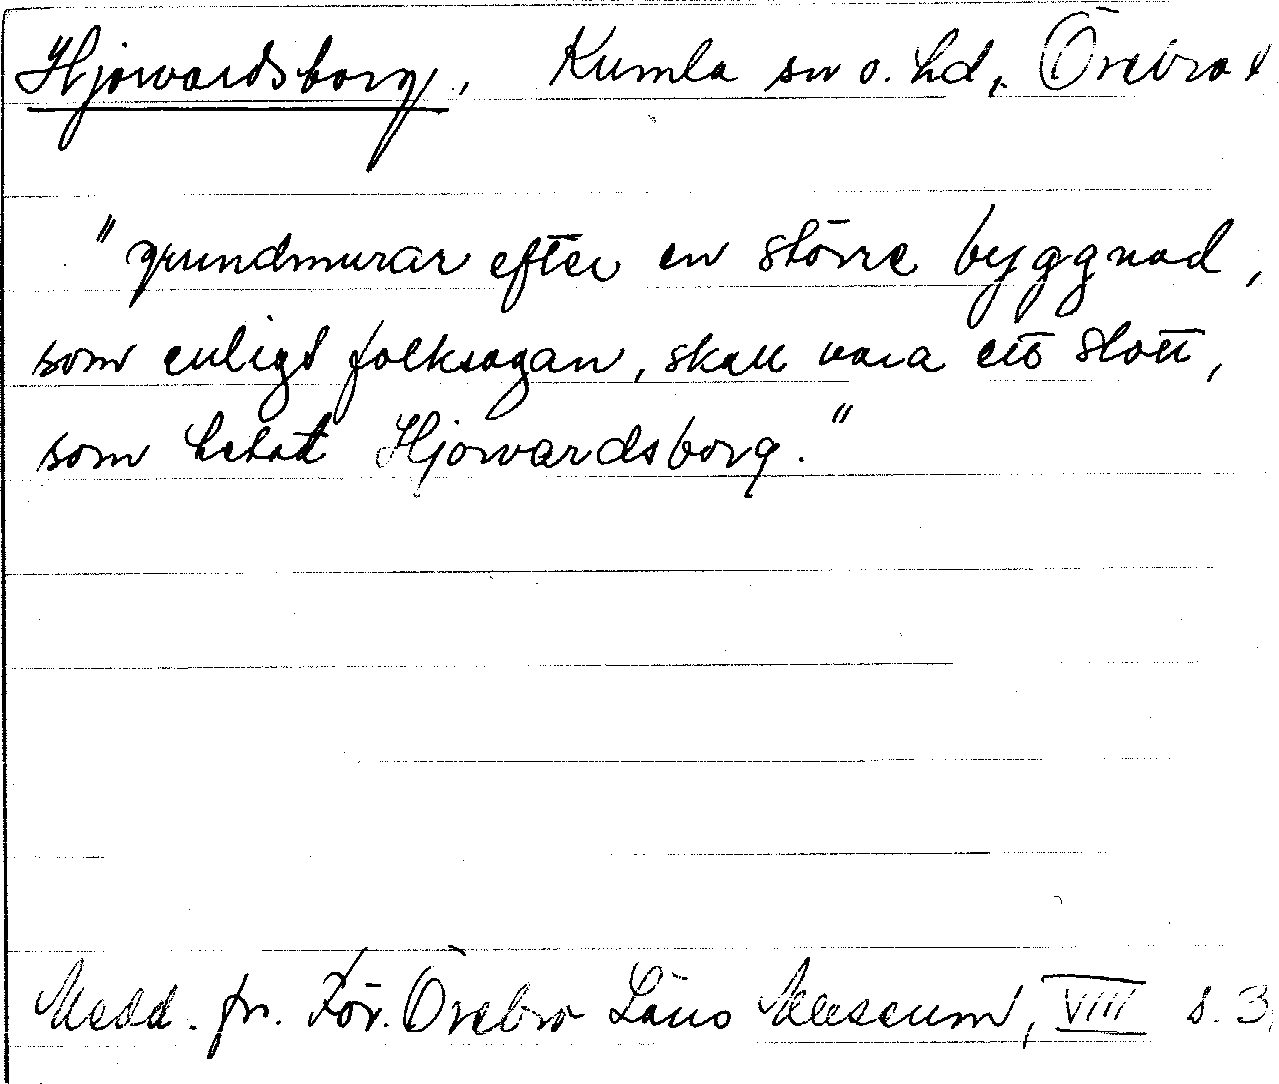 Hjorvardsborg, Kumla sn o. hd, Örebro l
"grundmurar efter en större byggnad,
som enligt folksagan, skall vara ett slott,
som hetat Hjorvardsborg."
Medd. fr. För. Örebro Läns Museum, VIII s. 3